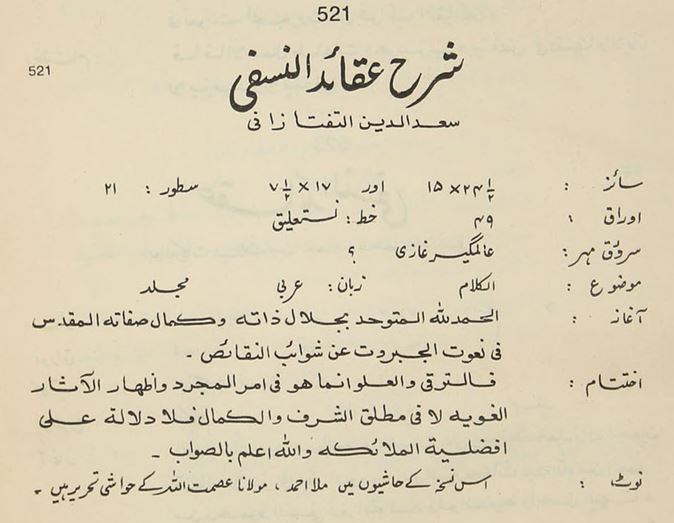 521
521
شرح عقائد النسفی
سعدالدین التفتازانی
سائز : ۲۴½ × ۱۵ اور ۱۷ × ۷½ سطور : ۲۱
اوراق : ۴۹ خط : نستعلیق
سروق مہر : عالمگیر غازی ؟
موضوع : الکلام زبان : عربی مجلد
آغاز : الحمدلله المتوحد بجلال ذاته وكمال صفاته المقدس
فى نعوت الجبروت عن شوائب النقائص ۔
اختتام : فالترقى والعلو انما هو فى امر المجرد واظهار الآثار
القويه لا فى مطلق الشرف والكمال فلا دلالة على
افضلية الملائكه والله اعلم بالصواب ۔
نوٹ : اس نسخہ کے حاشیوں میں ملا احمد ، مولانا عصمت اللہ کے حواشی تحریر ہیں ۔